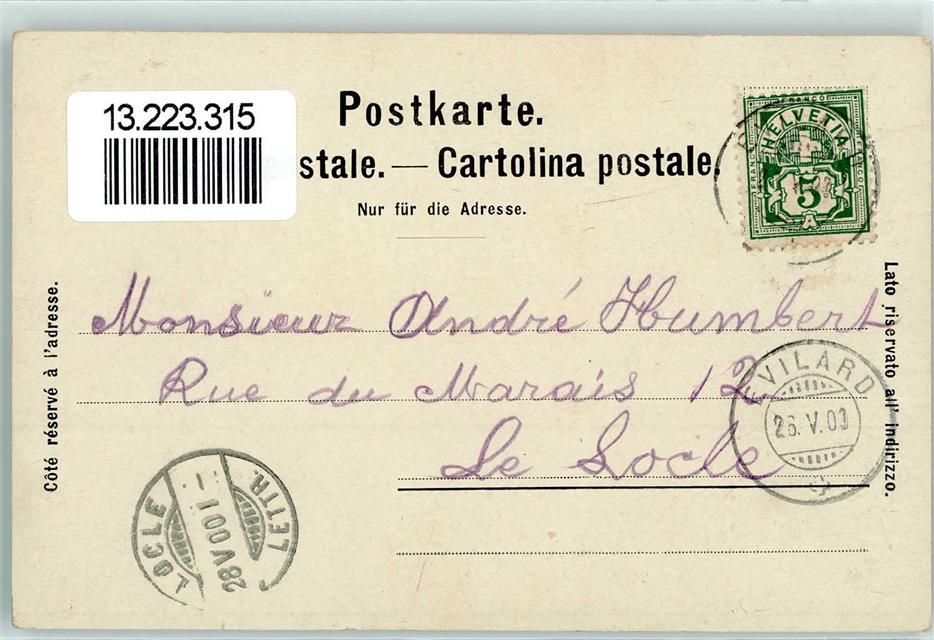 13.223.315
Postkarte.
stale. — Cartolina postale.
Nur für die Adresse.
FRANCO
HELVETIA
FRANCO
FRANCO
5
A
Côté réservé à l'adresse.
Lato riservato all' indirizzo.
Monsieur André Humbert
Rue du Marais 12
Le Locle
EVILARD
26.V.00
LOCLE
28 V 00 1
LETTR.